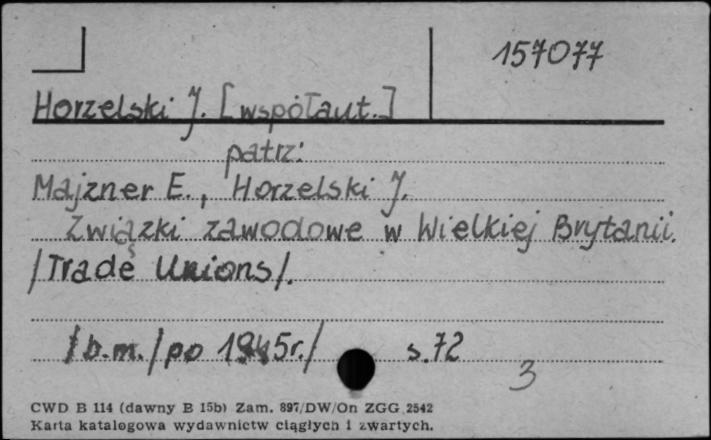 157077
Horzelski J. [współaut.]
patrz:
Majzner E., Horzelski J.
Związki zawodowe w Wielkiej Brytanii.
/Trade Unions/.
/b.m./po 1945r./ s.72
3
CWD B 114 (dawny B 15b) Zam. 897/DW/On ZGG 2542
Karta katalogowa wydawnictw ciągłych i zwartych.